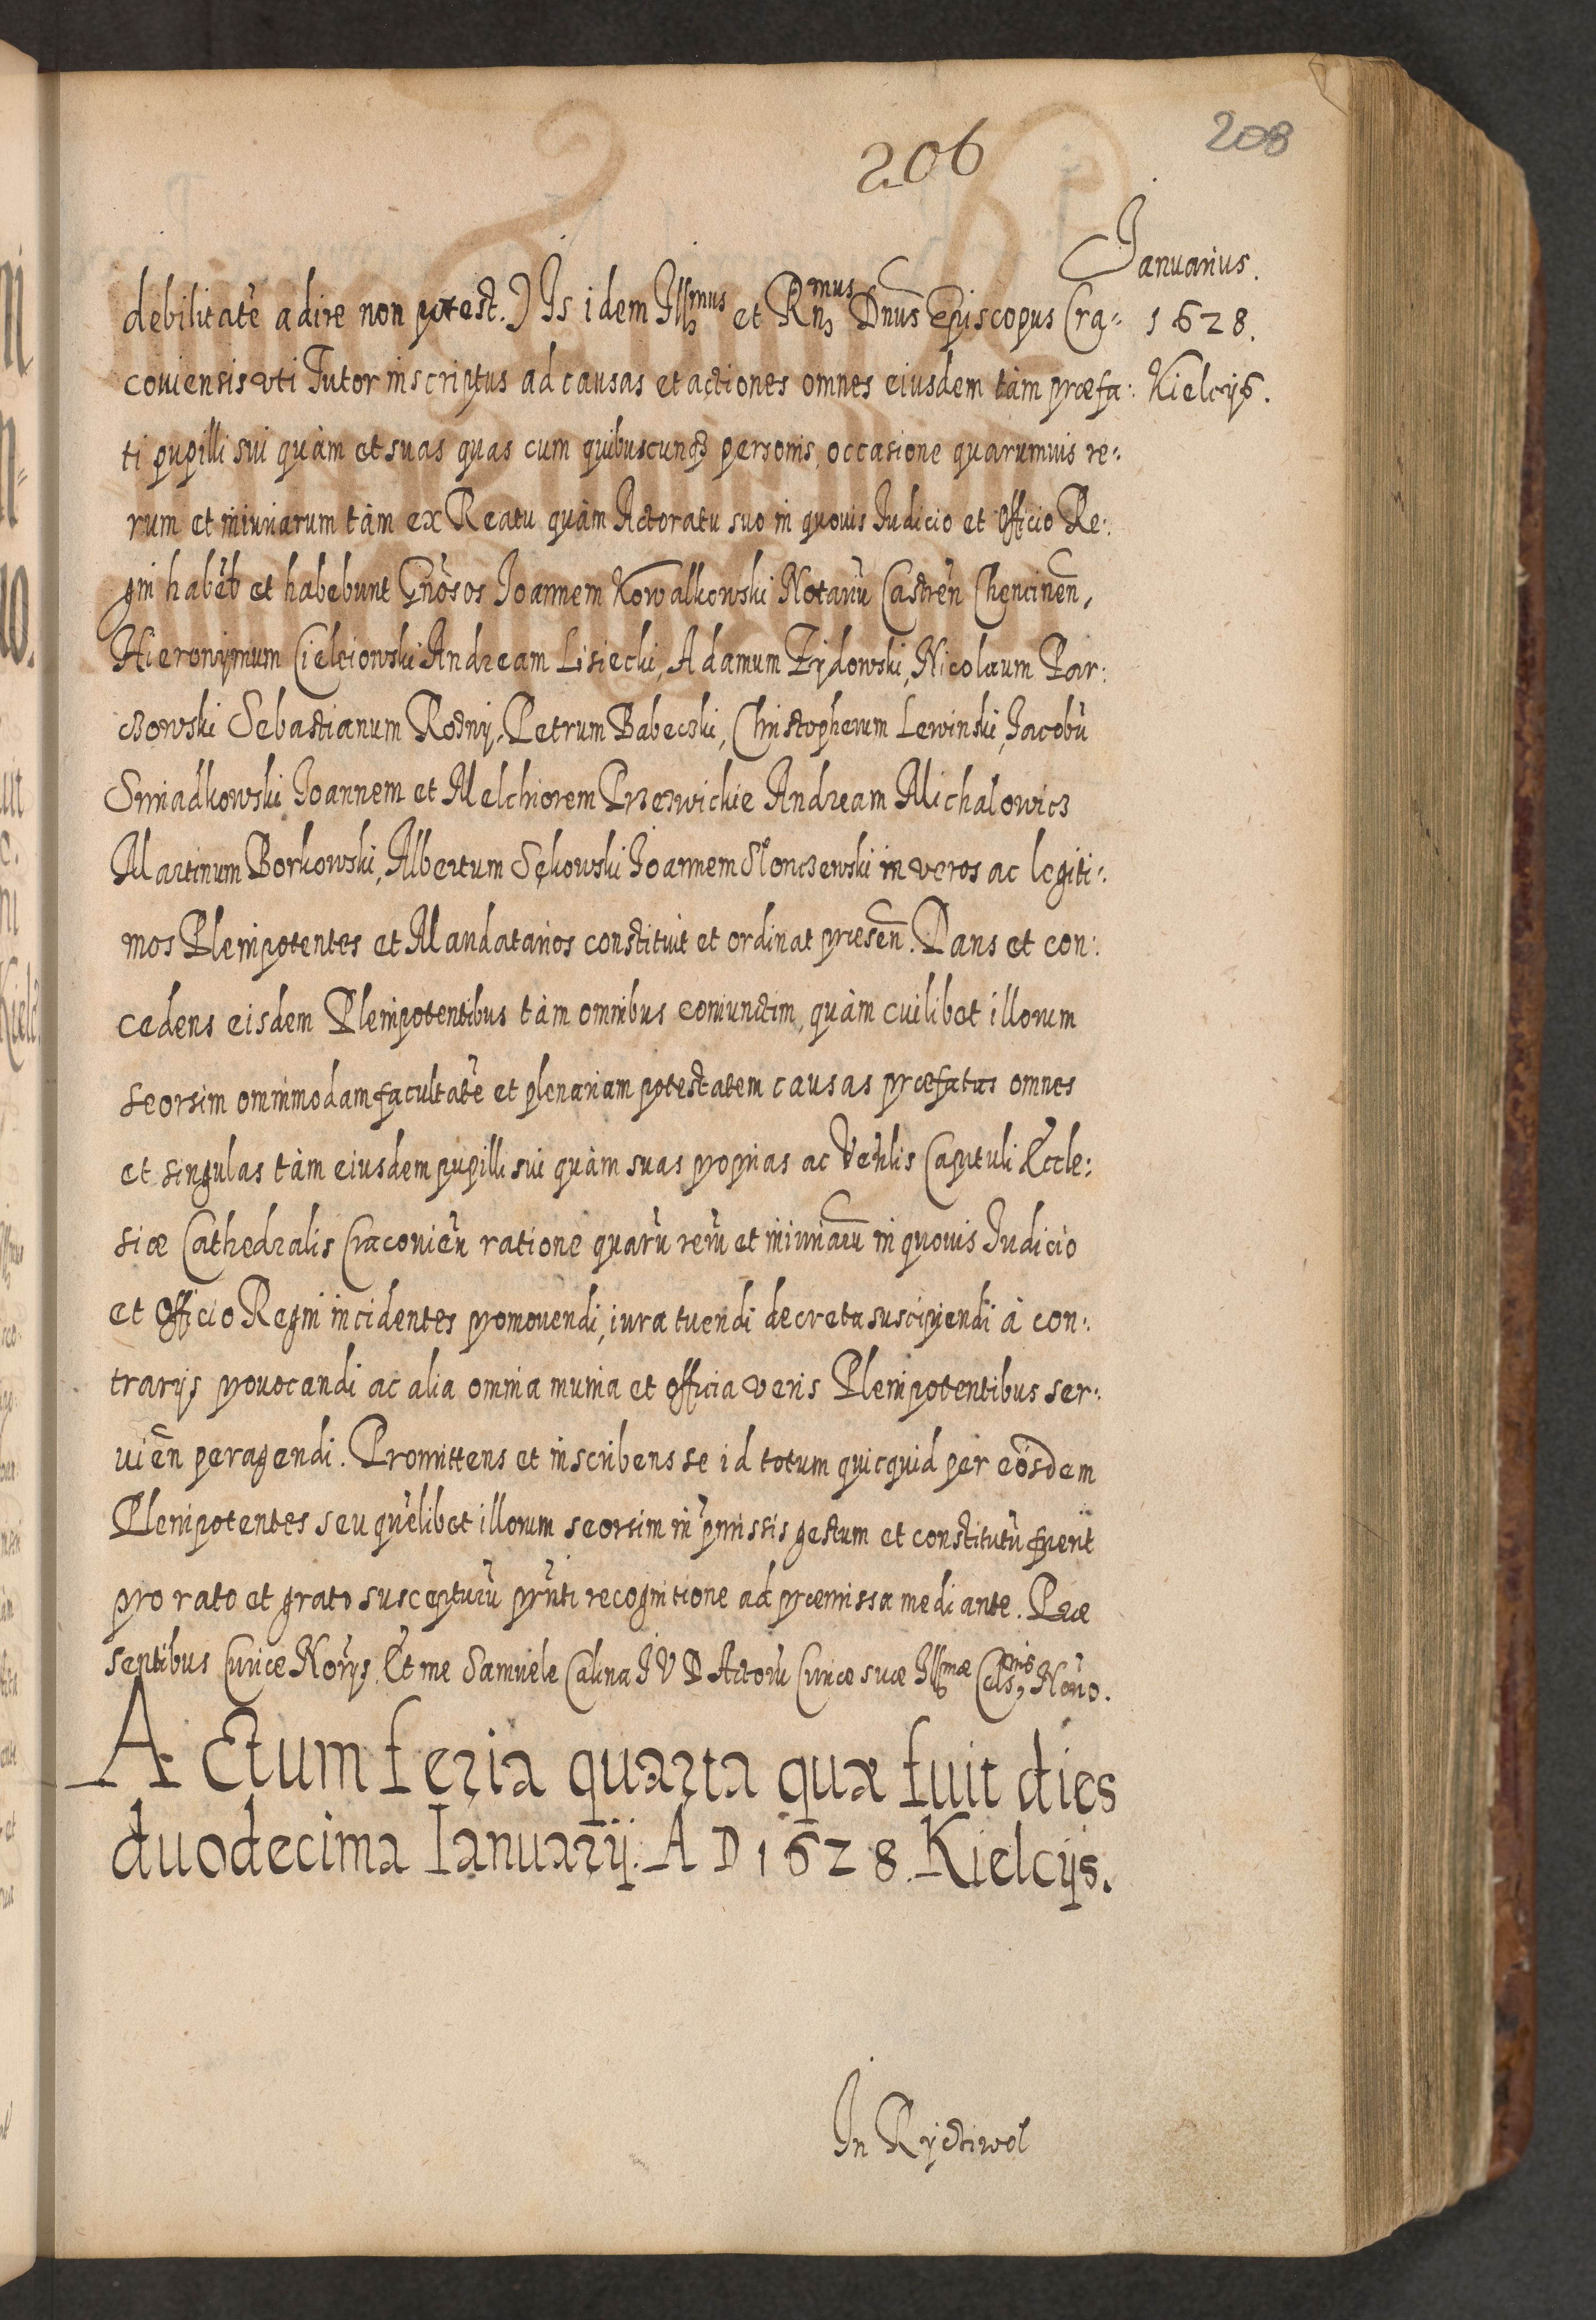 206
208
Januarius.
1628.
Kielcijs.
debilitatē adire non potest.) Is idem Illmus et Rnmus Dnus Episcopus Cra-
couiensis vti Tutor inscriptus ad causas et actiones omnes eiusdem tàm præfa:
ti pupilli sui quàm et suas quas cum quibuscunq3 personis, occasione quarumuis re:
rum et iniuriarum tàm ex Reatu quàm Actoratu suo in quouis Iudicio et Officio Re:
gni habēt et habebunt Gnōsos Joannem Kowalkowski Notariū Castreñ Chencineñ,
Hieronymum Cielciowski Andream Lisiecki, Adamum Zydowski, Nicolaum Par:
czowski Sebastianum Rosny, Petrum Babeczki, Christopherum Lewinski, Jacobū
Swiadkowski Joannem et Melchiorem Przerwickie Andream Michalowicz
Martinum Borkowski, Albertum Sękowski Joannem Slonczewski in veros ac legiti:
mos Plenipotentes et Mandatarios constituit et ordinat præseñ. Dans et con:
cedens eisdem Plenipotentibus tàm omnibus coniunctim, quàm cuilibet illorum
seorsim omnimodam facultatē et plenariam potestatem causas præfatas omnes
et singulas tàm eiusdem pupilli sui quàm suas proprias ac Veñlis Capituli Eccle:
siæ Cathedralis Cracouieñ ratione quarū rerū et iniuriarū in quouis Iudicio
et Officio Regni incidentes promouendi, iura tuendi decreta suscipiendi à con:
trarijs prouocandi ac alia omnia munia et officia veris Plenipotentibus ser:
uieñ peragendi. Promittens et inscribens se id totum quicquid per eosdem
Plenipotentes seu quēlibet illorum seorsim in pmissis gestum et constitutū fuerit
pro rato et grato suscepturū pñti recognitione ad præmissa mediante. Præ
sentibus Curiæ Norijs. Et me Samuele Calina I V D Actorū Curiæ suæ Illmæ Celsnis Norio.
Actum feria quarta quæ fuit dies
duodecima Ianuarij. A D 1628. Kielcijs.
In Ryctiwol